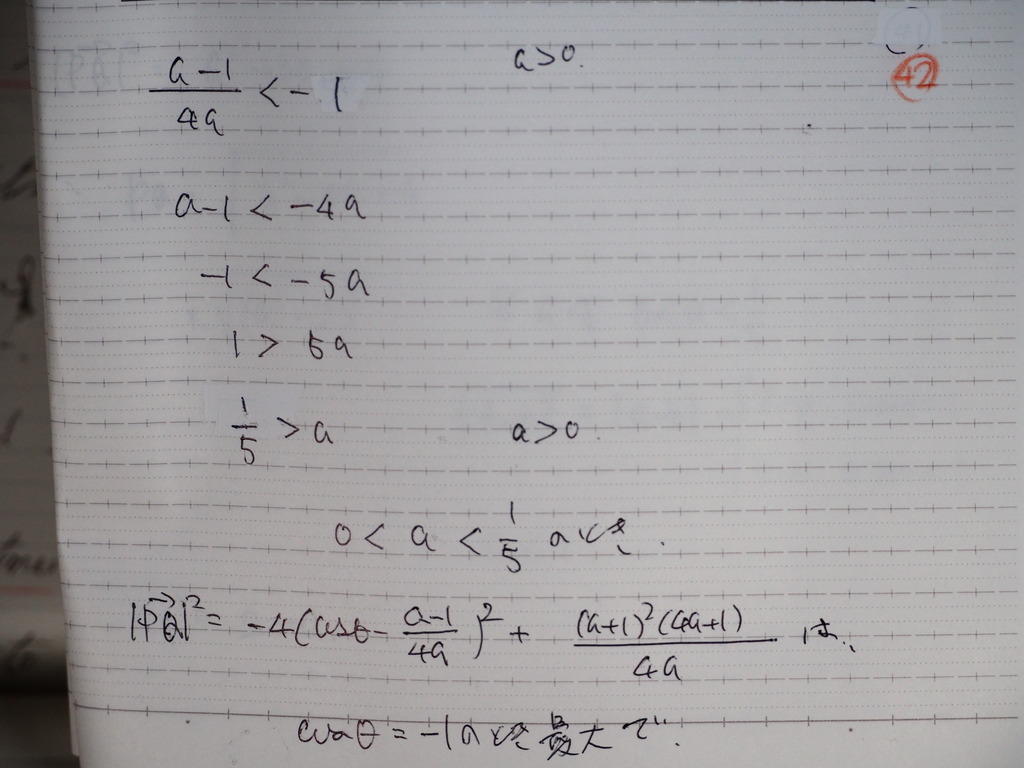 a>0.
㊷
(a-1)/(4a) < -1
a-1 < -4a
-1 < -5a
1 > 5a
1/5 > a a>0.
0 < a < 1/5 のとき、
|PQ→|² = -4(cosθ - (a-1)/(4a))² + ((a+1)²(4a+1))/(4a) は、
cosθ = -1 のとき 最大で、